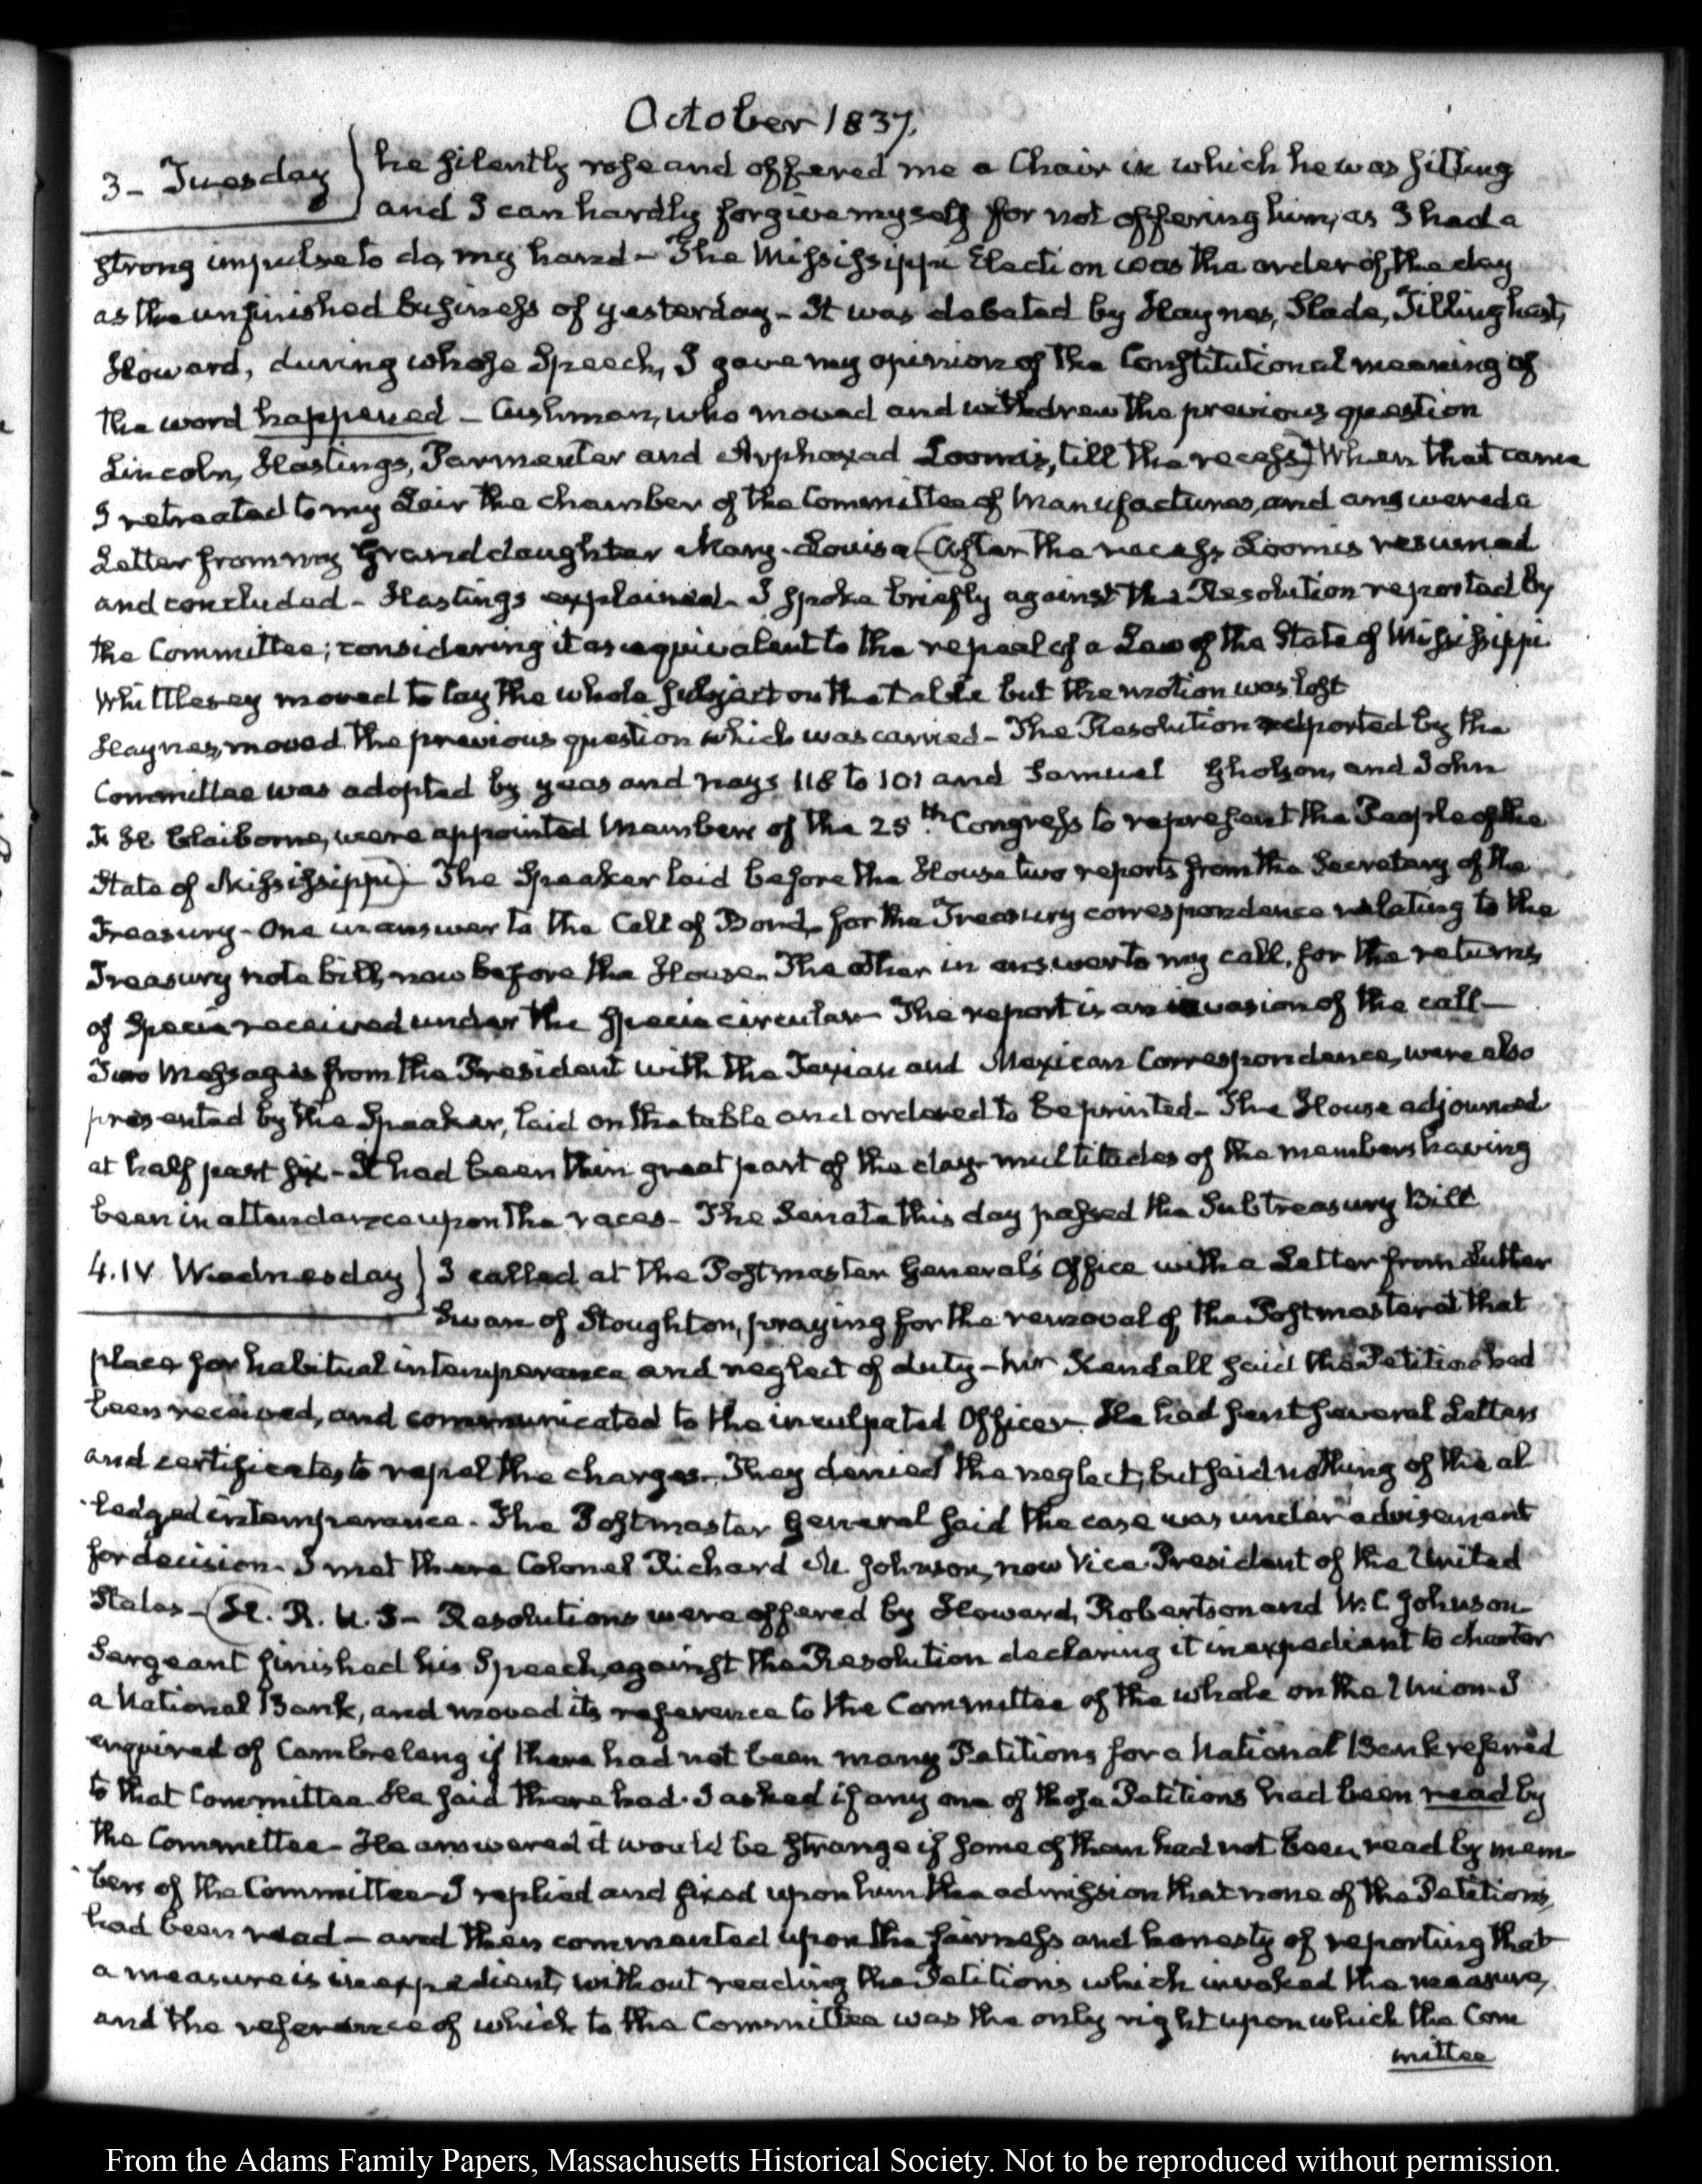 October 1837.
3 - Tuesday } he silently rose and offered me a Chair in which he was sitting
and I can hardly forgive myself for not offering him, as I had a
strong impulse to do, my hand - The Mississippi Election was the order of the day
as the unfinished business of yesterday - It was debated by Haynes, Slade, Tillinghast,
Howard, during whose Speech, I gave my opinion of the Constitutional meaning of
the word happened - Cushman, who moved and withdrew the previous question
Lincoln, Hastings, Parmenter and Arphaxad Loomis, till the recess) When that came
I retreated to my Lair the chamber of the Committee of Manufactures, and answered a
Letter from my Granddaughter Mary-Louisa (After the recess Loomis resumed
and concluded - Hastings explained - I spoke briefly against the Resolution reported by
the Committee; considering it as equivalent to the repeal of a Law of the State of Mississippi
Whittlesey moved to lay the whole subject on the table but the motion was lost
Haynes, moved the previous question which was carried - The Resolution reported by the
Committee was adopted by yeas and nays 118 to 101 and Samuel Gholson, and John
F. H. Claiborne, were appointed Members of the 25th Congress to represent the People of the
State of Mississippi) - The Speaker laid before the House two reports from the Secretary of the
Treasury - One in answer to the Call of Bond, for the Treasury correspondence relating to the
Treasury note bill, now before the House. The other in answer to my call, for the returns
of Specie received under the Specie circular - The report is an evasion of the call -
Two Messages from the President with the Texian and Mexican Correspondence, were also
presented by the Speaker, laid on the table and ordered to be printed - The House adjourned
at half past six - It had been thin great part of the day - multitudes of the members having
been in attendance upon the races - The Senate this day passed the Subtreasury Bill
4. IV Wednesday } I called at the Postmaster General's Office with a Letter from Luther
Swan of Stoughton, praying for the removal of the Postmaster at that
place, for habitual intemperance and neglect of duty - Mr Kendall said the Petition had
been received, and communicated to the inculpated Officer. He had sent several Letters
and certificates, to repel the charges. They denied the neglect, but said nothing of the al
ledged intemperance. The Postmaster General said the case was under advisement
for decision. I met there Colonel Richard M. Johnson, now Vice-President of the United
States - (H. R. U. S - Resolutions were offered by Howard, Robertson and W. C. Johnson -
Sergeant finished his Speech, against the Resolution declaring it inexpedient to charter
a National Bank, and moved its reference to the Committee of the whole on the Union - I
enquired of Cambreleng if there had not been many Petitions for a National Bank referred
to that Committee He said there had. I asked if any one of those Petitions had been read by
the Committee - He answered it would be strange if some of them had not been read by mem-
bers of the Committee - I replied and fixed upon him the admission that none of the Petitions,
had been read - and then commented upon the fairness and honesty of reporting that
a measure is inexpedient, without reading the Petitions which invoked the measure,
and the reference of which to the Committee was the only right upon which the Com
mittee
From the Adams Family Papers, Massachusetts Historical Society. Not to be reproduced without permission.